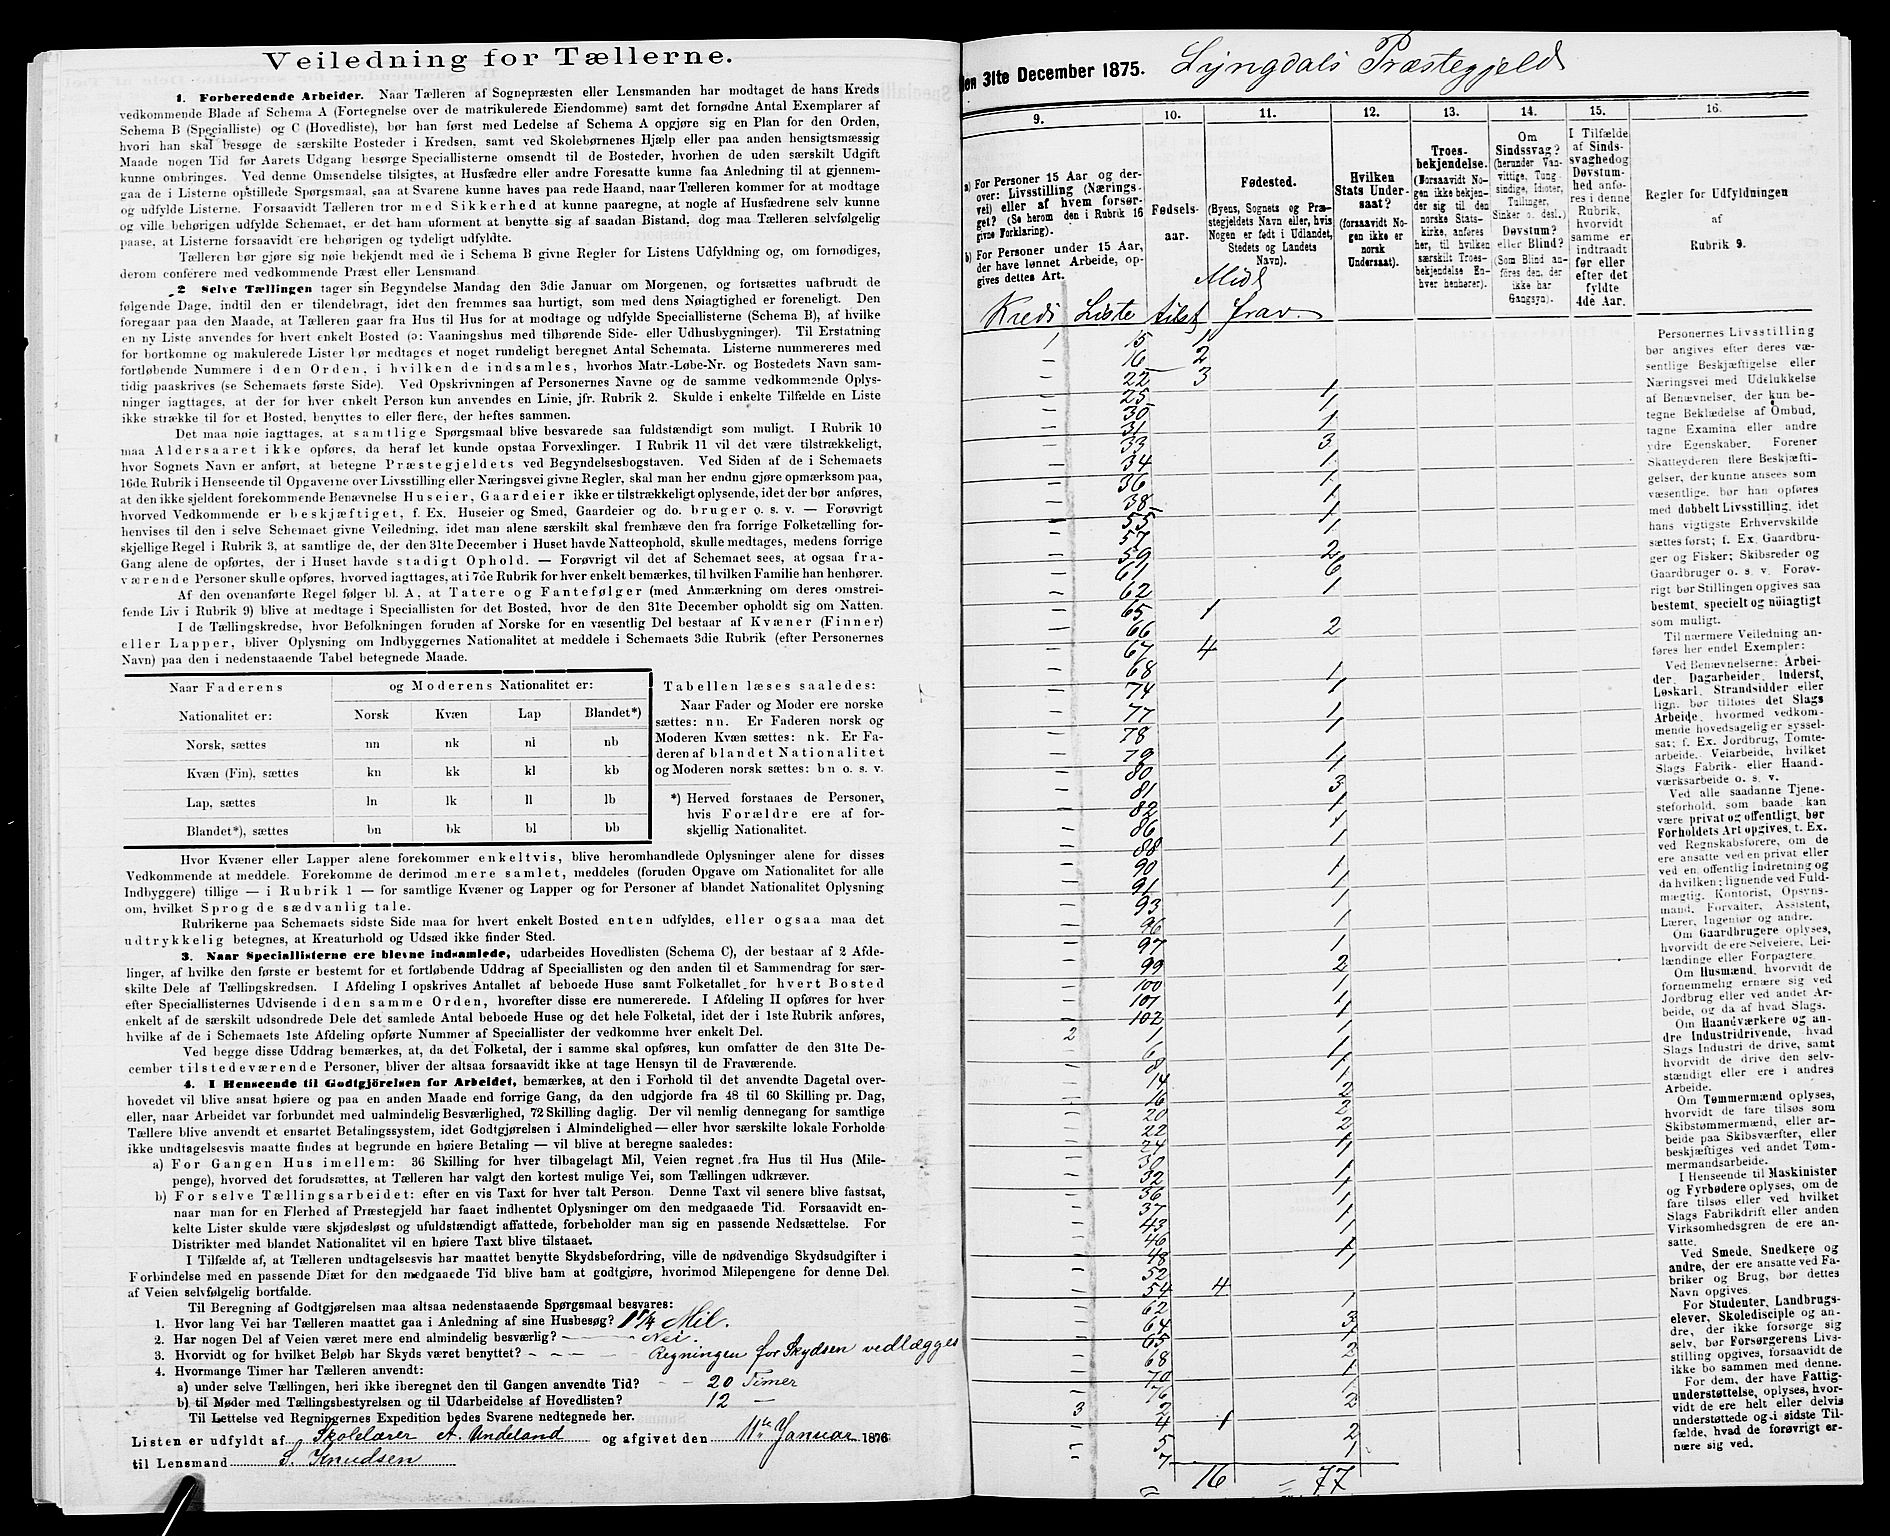 Veiledning for Tællerne.
1. Forberedende Arbeider. Naar Tælleren af Sognepræsten eller Lensmanden har modtaget de hans Kreds
vedkommende Blade af Schema A (Fortegnelse over de matrikulerede Eiendomme) samt det fornødne Antal Exemplarer af
Schema B (Specialliste) og C (Hovedliste), bør han først med Ledelse af Schema A opgjøre sig en Plan for den Orden,
hvori han skal besøge de særskilte Bosteder i Kredsen, samt ved Skolebørnenes Hjælp eller paa anden hensigtsmæssig
Maade nogen Tid før Aarets Udgang besørge Speciallisterne omsendt til de Bosteder, hvorhen de uden særskilt Udgift
kunne ombringes. Ved denne Omsendelse tilsigtes, at Husfædre eller andre Foresatte kunne faa Anledning til at gjennem-
gaa de i Listerne opstillede Spørgsmaal, saa at Svarene kunne haves paa rede Haand, naar Tælleren kommer for at modtage
og udfylde Listerne. Forsaavidt Tælleren tror med Sikkerhed at kunne paaregne, at nogle af Husfædrene selv kunne
og ville behørigen udfylde Schemaet, er det ham uforment at benytte sig af saadan Bistand, dog maa Tælleren selvfølgelig
paase, at Listerne forsaavidt ere behørigen og tydeligt udfyldte.
Tælleren bør gjøre sig nøie bekjendt med de i Schema B givne Regler for Listens Udfyldning og, om fornødiges,
derom conferere med vedkommende Præst eller Lensmand
2 Selve Tællingen tager sin Begyndelse Mandag den 3die Januar om Morgenen, og fortsættes uafbrudt de
følgende Dage, indtil den er tilendebragt, idet den fremmes saa hurtigt, som med dens Nøiagtighed er foreneligt. Den
foregaar paa den Maade, at Tælleren gaar fra Hus til Hus for at modtage og udfylde Speciallisterne (Schema B), af hvilke
en ny Liste anvendes for hvert enkelt Bosted (ɔ: Vaaningshus med tilhørende Side- eller Udhusbygninger). Til Erstatning
for bortkomne og makulerede Lister bør medtages et noget rundeligt beregnet Antal Schemata. Listerne nummereres med
fortløbende Nummere i den Orden, i hvilken de indsamles, hvorhos Matr.-Løbe-Nr. og Bostedets Navn sam-
tidig paaskrives (se Schemaets første Side). Ved Opskrivningen af Personernes Navne og de samme vedkommende Oplys-
ninger iagttages, at der for hver enkelt Person kun anvendes en Linie, jfr. Rubrik 2. Skulde i enkelte Tilfælde en Liste
ikke strække til for et Bosted, benyttes to eller flere, der heftes sammen.
Det maa nøie iagttages, at samtlige Spørgsmaal blive besvarede saa fuldstændigt som muligt. I Rubrik 10
maa Aldersaaret ikke opføres, da heraf let kunde opstaa Forvexlinger. I Rubrik 11 vil det være tilstrækkeligt,
hvor Sognets Navn er anført, at betegne Præstegjeldets ved Begyndelsesbogstaven. Ved Siden af de i Schemaets
16de Rubrik i Henseende til Opgaverne over Livsstilling eller Næringsvei givne Regler, skal man her endnu gjøre opmærksom paa,
at den ikke sjeldent forekommende Benævnelse Huseier, Gaardeier ikke er tilstrækkeligt oplysende, idet der bør anføres,
hvorved Vedkommende er beskjæftiget, f. Ex. Huseier og Smed, Gaardeier og do. bruger o. s. v. — Forøvrigt
henvises til den i selve Schemaet givne Veiledning, idet man alene særskilt skal fremhæve den fra forrige Folketælling for-
skjellige Regel i Rubrik 3, at samtlige de, der den 31te December i Huset havde Natteophold, skulle medtages, medens forrige
Gang alene de opførtes, der i Huset havde stadigt Ophold. — Forøvrigt vil det af Schemaet sees, at ogsaa fra-
værende Personer skulle opføres, hvorved iagttages, at i 7de Rubrik for hver enkelt bemærkes, til hvilken Familie han henhører.
Af den ovenanførte Regel følger bl. A, at Tatere og Fantefølger (med Anmærkning om deres omstrei-
fende Liv i Rubrik 9) blive at medtage i Speciallisten for det Bosted, hvor de den 31te December opholdt sig om Natten.
I de Tællingskredse, hvor Befolkningen foruden af Norske for en væsentlig Del bestaar af Kvæner (Finner)
eller Lapper, bliver Oplysning om Indbyggernes Nationalitet at meddele i Schemaets 3die Rubrik (efter Personernes
Navn) paa den i nedenstaaende Tabel betegnede Maade.
Naar Faderens og Moderens Nationalitet er:
Nationalitet er: Norsk Kvæn Lap Blandet*)
Norsk, sættes nn nk nl nb
Kvæn (Fin), sættes kn kk kl kb
Lap, sættes ln lk ll lb
Blandet*), sættes bn bk bl bb
Tabellen læses saaledes:
Naar Fader og Moder ere norske
sættes: nn. Er Faderen norsk og
Moderen Kvæn sættes: nk. Er Fa-
deren af blandet Nationalitet
og Moderen norsk sættes: bn o. s. v.
*) Herved forstaaes de Personer,
hvis Forældre ere af for-
skjellig Nationalitet.
Hvor Kvæner eller Lapper alene forekommer enkeltvis, blive heromhandlede Oplysninger alene for disses
Vedkommende at meddele. Forekomme de derimod mere samlet, meddeles (foruden Opgave om Nationalitet for alle
Indbyggere) tillige — i Rubrik 1 — for samtlige Kvæner og Lapper og for Personer af blandet Nationalitet Oplysning
om, hvilket Sprog de sædvanlig tale.
Rubrikerne paa Schemaets sidste Side maa for hvert enkelt Bosted enten udfyldes, eller ogsaa maa det
udtrykkelig betegnes, at Kreaturhold og Udsæd ikke finder Sted.
3. Naar Speciallisterne ere blevne indsamlede, udarbeides Hovedlisten (Schema C), der bestaar af 2 Afde-
linger, af hvilke den første er bestemt for et fortløbende Uddrag af Speciallisten og den anden til et Sammendrag for sær-
skilte Dele af Tællingskredsen. I Afdeling I opskrives Antallet af beboede Huse samt Folketallet for hvert Bosted
efter Speciallisternes Udvisende i den samme Orden, hvorefter disse ere nummererede. I Afdeling II opføres for hver
enkelt af de særskilt udsondrede Dele det samlede Antal beboede Huse og det hele Folketal, idet der i 1ste Rubrik anføres,
hvilke af de i Schemaets 1ste Afdeling opførte Nummer af Speciallister der vedkomme hver enkelt Del.
Ved begge disse Uddrag bemærkes, at, da det Folketal, der i samme skal opføres, kun omfatter de den 31te De-
cember tilstedeværende Personer, bliver der altsaa forsaavidt ikke at tage Hensyn til de Fraværende.
4. I Henseende til Godtgjörelsen for Arbeidet, bemærkes, at den i Forhold til det anvendte Dagetal over-
hovedet vil blive ansat høiere og paa en anden Maade end forrige Gang, da den udgjorde fra 48 til 60 Skilling pr. Dag,
eller, naar Arbeidet var forbundet med ualmindelig Besværlighed, 72 Skilling daglig. Der vil nemlig dennegang for samtlige
Tællere blive anvendt et ensartet Betalingssystem, idet Godtgjørelsen i Almindelighed — eller hvor særskilte lokale Forholde
ikke undtagelsesvis maatte findes at begrunde en høiere Betaling — vil blive at beregne saaledes:
a) For Gangen Hus imellem: 36 Skilling for hver tilbagelagt Mil, Veien regnet fra Hus til Hus (Mile-
penge), hvorved det forudsættes, at Tælleren har valgt den kortest mulige Vei, som Tællingen udkræver.
b) For selve Tællingsarbeidet: efter en vis Taxt for hver talt Person. Denne Taxt vil senere blive fastsat,
naar man for en Flerhed af Præstegjeld har faaet indhentet Oplysninger om den medgaaede Tid. Forsaavidt en-
kelte Lister skulde være skjødesløst og ufuldstændigt affattede, forbeholder man sig en passende Nedsættelse. For
Distrikter med blandet Nationalitet vil en høiere Taxt blive tilstaaet.
I Tilfælde af, at Tælleren undtagelsesvis har maattet benytte Skydsbefordring, ville de nødvendige Skydsudgifter i
Forbindelse med en passende Diæt for den medgaaede Tid blive ham at godtgjøre, hvorimod Milepengene for denne Del
af Veien selvfølgelig bortfalde.
Til Beregning af Godtgjørelsen maa altsaa nedenstaaende Spørgsmaal besvares:
1. Hvor lang Vei har Tælleren maattet gaa i Anledning af sine Husbesøg? Mil.
2. Har nogen Del af Veien været mere end almindelig besværlig? — Nei.
3. Hvorvidt og for hvilket Beløb har Skyds været benyttet? - - - - Regningen for Skydsen vedlægges
4. Hvormange Timer har Tælleren anvendt:
a) under selve Tællingen, heri ikke iberegnet den til Gangen anvendte Tid? - - 20 Timer
b) til Møder med Tællingsbestyrelsen og til Udarbeidelse af Hovedlisten? 12 —
Til Lettelse ved Regningernes Expedition bedes Svarene nedtegnede her.
Listen er udfyldt af Skolelærer A. Undeland og afgivet den 11te Januar 1876
til Lensmand S. Knudsen
den 31te December 1875. Lyngdals Præstegjeld
9. 10. 11. 12. 13. 14. 15. 16.
a) For Personer 15 Aar og der-
over: Livsstilling (Nærings-
vei) eller af hvem forsør-
get? (Se herom den i Rubrik 16
givne Forklaring).
b) For Personer under 15 Aar,
der have lønnet Arbeide, op-
gives dettes Art.
Fødsels-
aar.
Fødested.
(Byens, Sognets og Præ-
stegjeldets Navn eller, hvis
Nogen er født i Udlandet,
Stedets og Landets
Navn).
Hvilken
Stats Under-
saat?
(forsaavidt No-
gen ikke er
norsk
Undersaat).
Troes-
bekjendelse.
(Forsaavidt No-
gen ikke bekjen-
der sig til den
norske Stats-
kirke, anføres
her, til hvilken
særskilt Troes-
bekjendelse En-
hver henhører).
Om
Sindssvag?
(herunder Van-
vittige, Tung-
sindige, Idioter,
Tullinger,
Sinker o. desl.)
Døvstum?
eller Blind?
(Som Blind an-
føres den, der
ikke har
Gangsyn).
I Tilfælde
af Sinds-
svaghed og
Døvstum-
hed anfø-
res i denne
Rubrik,
hvorvidt
samme er
indtraadt
før eller
efter det
fyldte
4de Aar.
Regler for Udfyldningen
af
Rubrik 9.
Midl
Kreds Liste tilst frav.
1 15 1
— 16 2
— 22 3
— 25 1
— 30 1
— 31 1
— 33 3
— 34 1
— 36 1
— 38 1
— 55 1
— 57 1
— 59 2
— 61 6
— 62 1
— 65 1
— 66 2
— 67 4
— 68 1
— 74 1
— 77 1
— 78 1
— 79 1
— 80 4
— 81 3
— 82 1
— 86 1
— 88 1
— 90 1
— 91 1
— 93 1
— 96 1
— 97 1
— 99 2
— 100 1
— 101 1
— 102 1
2 1 1
— 6 1
— 8 1
— 14 1
— 16 2
— 20 2
— 22 2
— 24 1
— 30 1
— 32 1
— 36 1
— 37 1
— 43 1
— 46 1
— 48 1
— 52 1
— 54 4
— 62 1
— 64 3
— 65 1
— 68 2
— 70 1
— 76 1
3 2 2
— 4 1
— 5 2
— 7 1
= 16 = 77
Personernes Livsstilling
bør angives efter deres væ-
sentlige Beskjæftigelse eller
Næringsvei med Udelukkelse
af Benævnelser, der kun be-
tegne Beklædelse af Ombud,
tagne Examina eller andre
ydre Egenskaber. Forener
Skatteyderen flere Beskjæfti-
gelser, der kunne ansees som
væsentlige, bør han opføres
med dobbelt Livsstilling, idet
hans vigtigste Erhvervskilde
sættes først; f. Ex. Gaardbru-
ger og Fisker; Skibsreder og
Gaardbruger o. s. v. Forøv-
rigt bør Stillingen opgives saa
bestemt, specielt og nöiagtigt
som muligt.
Til nærmere Veiledning an-
føres her endel Exempler:
Ved Benævnelserne: Arbei-
der, Dagarbeider, Inderst,
Løskarl, Strandsidder eller
lign. bør tilføies det Slags
Arbeide, hvormed vedkom-
mende hovedsagelig er syssel-
sat; f. Ex. Jordbrug, Tomte-
arbeide, Veiarbeide, hvilket
Slags Fabrik- eller Haand-
værksarbeide o. s. v.
Ved alle saadanne Tjene-
steforhold, som baade kan
være privat og offentligt, bør
Forholdets Art opgives, t. Ex.
ved Regnskabsførere, om de
ere ansatte ved en privat eller
ved en offentlig Indretning og
da hvilken; lignende ved Fuld-
mægtig, Kontorist, Opsyns-
mand, Forvalter, Assistent,
Lærer, Ingeniør og andre.
Om Gaardbrugere oplyses,
hvorvidt de ere Selveiere, Lei-
lændinge eller Forpagtere.
Om Husmænd, hvorvidt de
fornemmelig ernære sig ved
Jordbrug eller ved andet Ar-
beide, og da af hvad Slags.
Om Haandværkere og an-
dre Industridrivende, hvad
Slags Industri de drive, samt
hvorvidt de drive den selv-
stændigt eller ere i andres
Arbeide.
Om Tømmermænd oplyses,
hvorvidt de fare tilsøs som
Skibstømmermænd, eller ar-
beide paa Skibsværfter, eller
beskjæftiges ved andet Tøm-
mermandsarbeide.
I Henseende til Maskinister
og Fyrbødere oplyses, om de
fare tilsøs eller ved hvilket
Slags Fabrikdrift eller anden
Virksomhedsgren de ere an-
satte.
Ved Smede, Snedkere og
andre, der ere ansatte ved Fa-
briker og Brug, bør dettes
Navn opgives.
For Studenter, Landbrugs-
elever, Skoledisciple og an-
dre, der ikke forsørge sig
selv, bør Forsørgerens Livs-
stilling opgives, forsaavidt de
ikke bo sammen med denne.
For dem, der have Fattig-
understøttelse, oplyses, hvor-
vidt de ere helt eller delvis
understøttede og i sidste Til-
fælde, hvad de forøvrigt er-
nære sig ved.